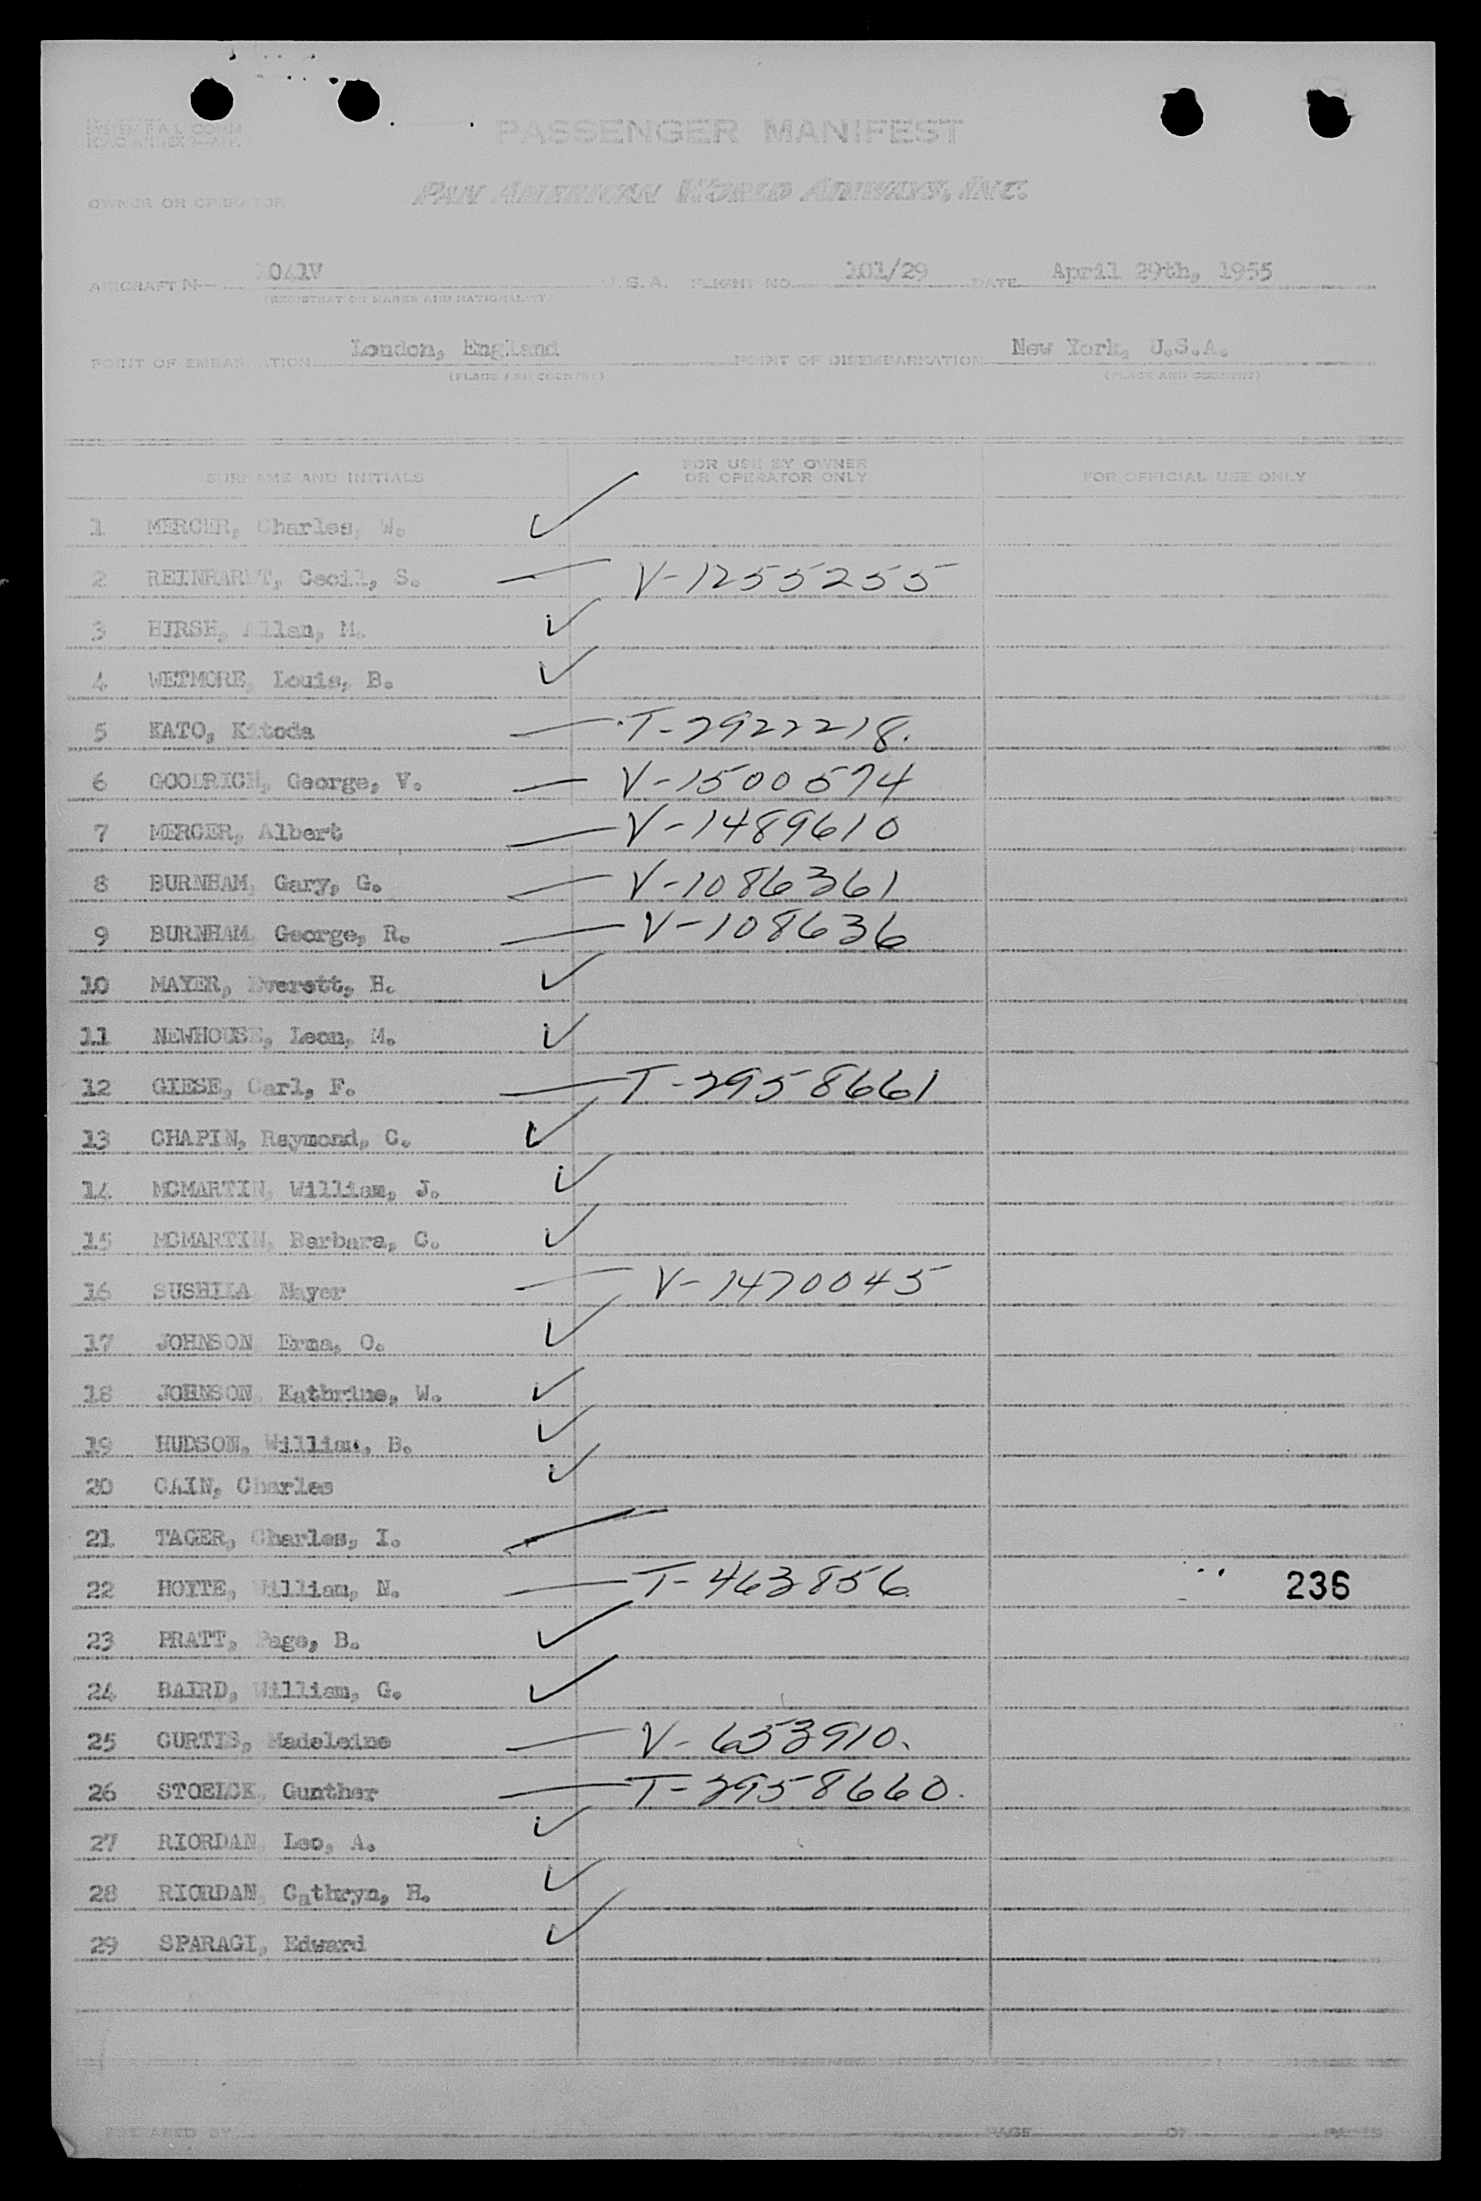 PASSENGER MANIFEST
SYSTEM F.A.L. COMM
OWNER OR OPERATOR PAN AMERICAN WORLD AIRWAYS, INC.
AIRCRAFT N— 1041V U.S.A. FLIGHT NO. 101/29 DATE April 29th, 1955
(REGISTRATION MARKS AND NATIONALITY)
POINT OF EMBARKATION London, England POINT OF DISEMBARKATION New York, U.S.A.
(PLACE AND COUNTRY) (PLACE AND COUNTRY)
SURNAME AND INITIALS FOR USE BY OWNER OR OPERATOR ONLY FOR OFFICIAL USE ONLY
1 MERCER, Charles, W. ✓
2 REINHARDT, Cecil, S. — V-1255255
3 HIRSH, Allan, M. ✓
4 WETMORE, Louis, B. ✓
5 KATO, Kitoda — T-2922218.
6 GOODRICH, George, V. — V-1500574
7 MERCER, Albert — V-1489610
8 BURNHAM, Gary, G. — V-1086361
9 BURNHAM, George, R. — V-108636
10 MAYER, Everett, H. ✓
11 NEWHOUSE, Leon, M. ✓
12 GIESE, Carl, F. — T-2958661
13 CHAPIN, Raymond, C. ✓
14 MCMARTIN, William, J. ✓
15 MCMARTIN, Barbara, C. ✓
16 SUSHILA Nayer — V-1470045
17 JOHNSON, Erma, O. ✓
18 JOHNSON, Kathrine, W. ✓
19 HUDSON, William, B. ✓
20 CAIN, Charles ✓
21 TAGER, Charles, I. —
22 HOYTE, William, N. — T-463856 236
23 PRATT, Page, B. ✓
24 BAIRD, William, G. ✓
25 CURTIS, Madeleine — V-653910.
26 STOELCK, Gunther — T-2958660.
27 RIORDAN, Leo, A. ✓
28 RIORDAN, Cathryn, H. ✓
29 SPARAGI, Edward ✓
PREPARED BY PAGE OF PAGES